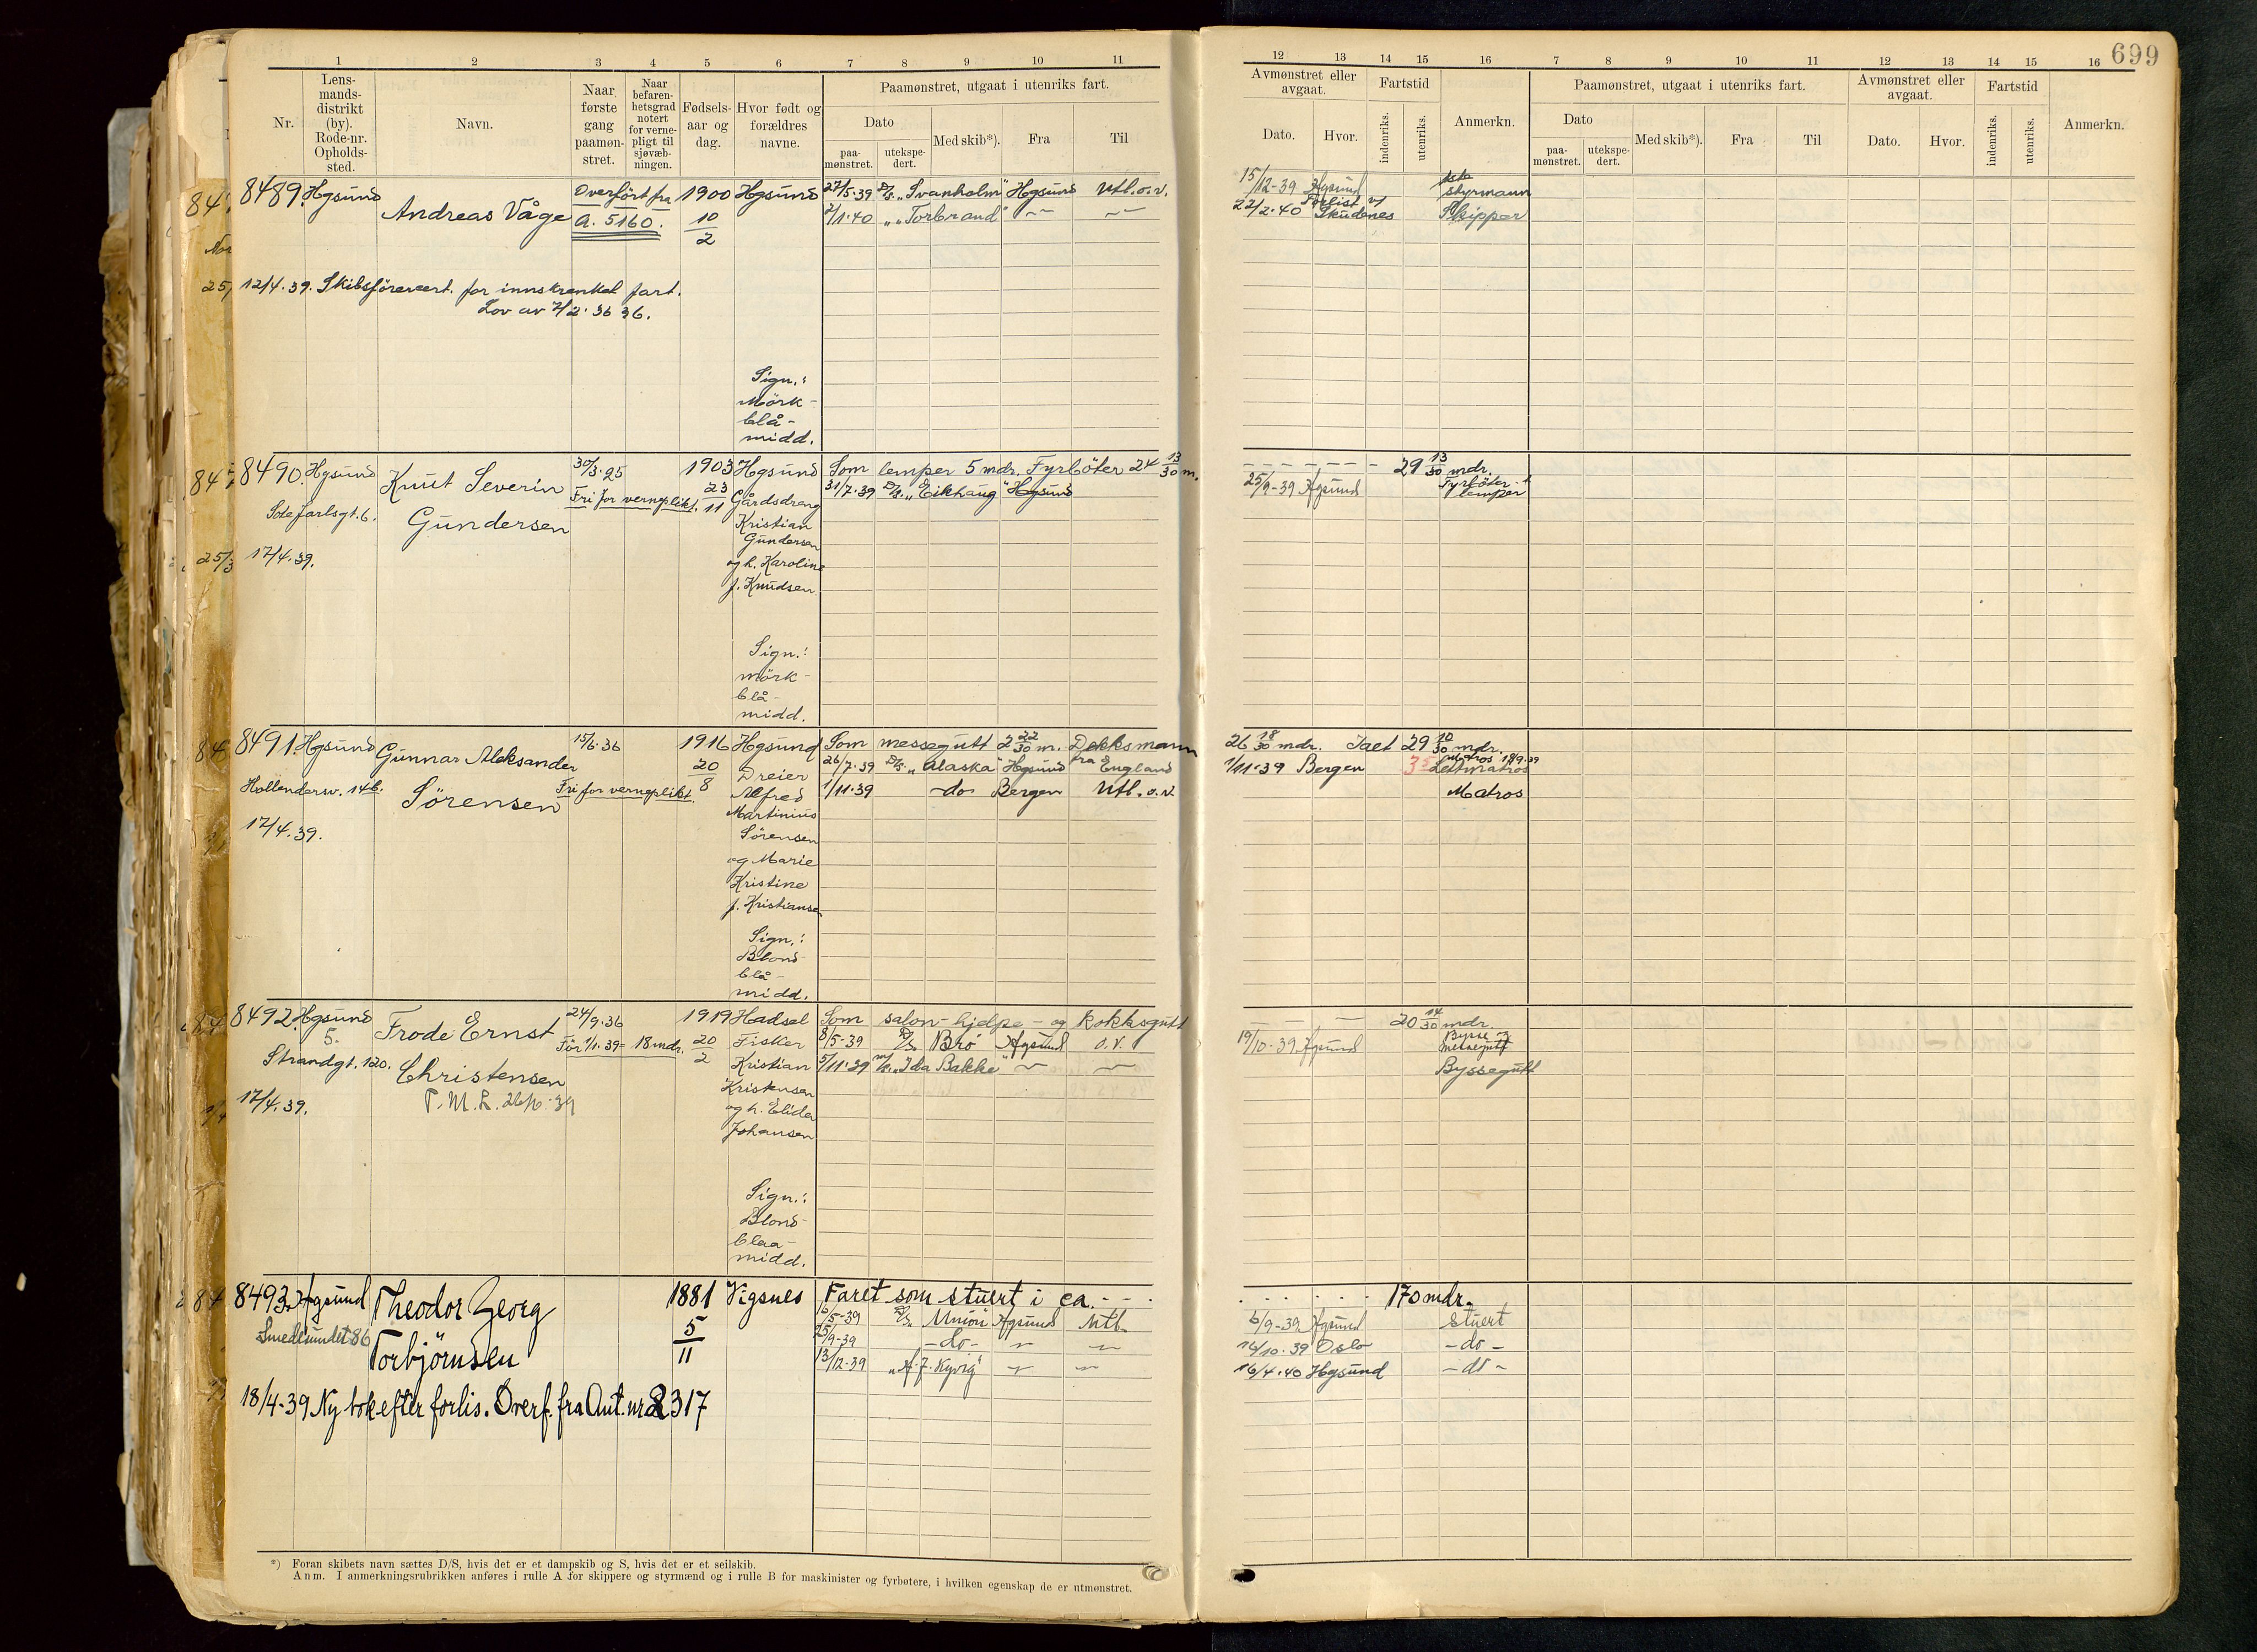 699
1 2 3 4 5 6 7 8 9 10 11
12 13 14 15 16 7 8 9 10 11 12 13 14 15 16
Nr.
Lens-
mands-
distrikt
(by).
Rode-nr.
Opholds-
sted.
Navn.
Naar
første
gang
paamøn-
stret.
Naar
befaren-
hetsgrad
notert
for verne-
pligt til
sjøvæb-
ningen.
Fødsels-
aar og
dag.
Hvor født og
forældres
navne.
Paamønstret, utgaat i utenriks fart.
Dato
paa-
mønstret.
utekspe-
dert.
Med skib*).
Fra
Til
Avmønstret eller
avgaat.
Dato.
Hvor.
Fartstid
indenriks.
utenriks.
Anmerkn.
Paamønstret, utgaat i utenriks fart.
Dato
paa-
mønstret.
utekspe-
dert.
Med skib*).
Fra
Til
Avmønstret eller
avgaat.
Dato.
Hvor.
Fartstid
indenriks.
utenriks.
Anmerkn.
8489. Hgsund
Andreas Våge
Overført fra
A. 5160.
1900
10/2
Hgsund
27/5.39 D/S. „Svanholm" Hgsund Utl. o.v.
2/1.40 „ „Torbrand" — —
15/12-39 Hgsund styrmann
22/2.40 Forlist v/ Skudenes Skipper
12/4.39. Skibsförercert. for innskrenket fart.
Lov av 7/2. 36 36.
Sign.:
Mörk-
blå-
midd.
8490. Hgsund
Knut Severin
Gundersen
30/3.25
Fri for verneplikt.
1903
23/11
Hgsund
Gårdsdreng
Kristian
Gundersen
og h. Karoline
f. Knudsen
Som lemper 5 mdr. Fyrböter 24 13/30 m.
31/7.39 D/S. „Eikhaug" Hgsund
29 13/30 mdr.
25/9-39 Hgsund Fyrböter +
lemper
Sote Jarlsgt. 6.
17/4.39.
Sign.:
mörk-
blå-
midd.
8491. Hgsund
Gunnar Aleksander
Sörensen
15/6.36
Fri for verneplikt.
1916
20/8
Hgsund
Dreier
Alfred
Martinius
Sörensen
og Marie
Kristine
f. Kristiansen
Som messegutt 2 22/30 m. Dekksmann
26/7.39 D/S. „Alaska" Hgsund fra England
1/11.39 -do- Bergen Utl. o.v.
26 18/30 mdr. Ialt 29 10/30 mdr.
Matros 18/9.39
1/11-39 Bergen Lettmatros
Matros
Hollenderv. 14b.
17/4.39.
Sign.:
Blond-
blå-
midd.
8492. Hgsund
5.
Frode Ernst
Christensen
24/9.36
För 1/1.39= 18 mdr.
1919
20/2
Hadsel
Fisker
Kristian
Kristensen
og h. Elida
Johansen
Som salon- hjelpe- og Kokksgutt
8/5-39 D/S Bro Hgsund o.v.
5/11.39 M/K. „Ida Bakke" — —
20 14/30 mdr.
19/10.39 Hgsund Bysse og
messegutt
Byssegutt
Strandgt. 120.
17/4.39.
Sign.:
Blond-
blaa-
midd.
8493. Hgsund
Smedesundet 86
Theodor Georg
Torbjørnsen
1881
5/11
Vigsnes
Faret som stuert i ca. - - -
170 mdr.
6/5-39 D/S. Union Hgsund Utl.
-do- — —
13/12-39 „H. J. Kyvig" — —
6/9-39 Hgsund Stuert
Oslo -do-
16/4.40 Hgsund -do-
18/4-39 Ny bok efter forlis. Overf. fra Ant. nr. 2317
*) Foran skibets navn sættes D/S, hvis det er et dampskib og S, hvis det er et seilskib.
Anm. I anmerkningsrubrikken anføres i rulle A for skippere og styrmænd og i rulle B for maskinister og fyrbøtere, i hvilken egenskap de er utmønstret.